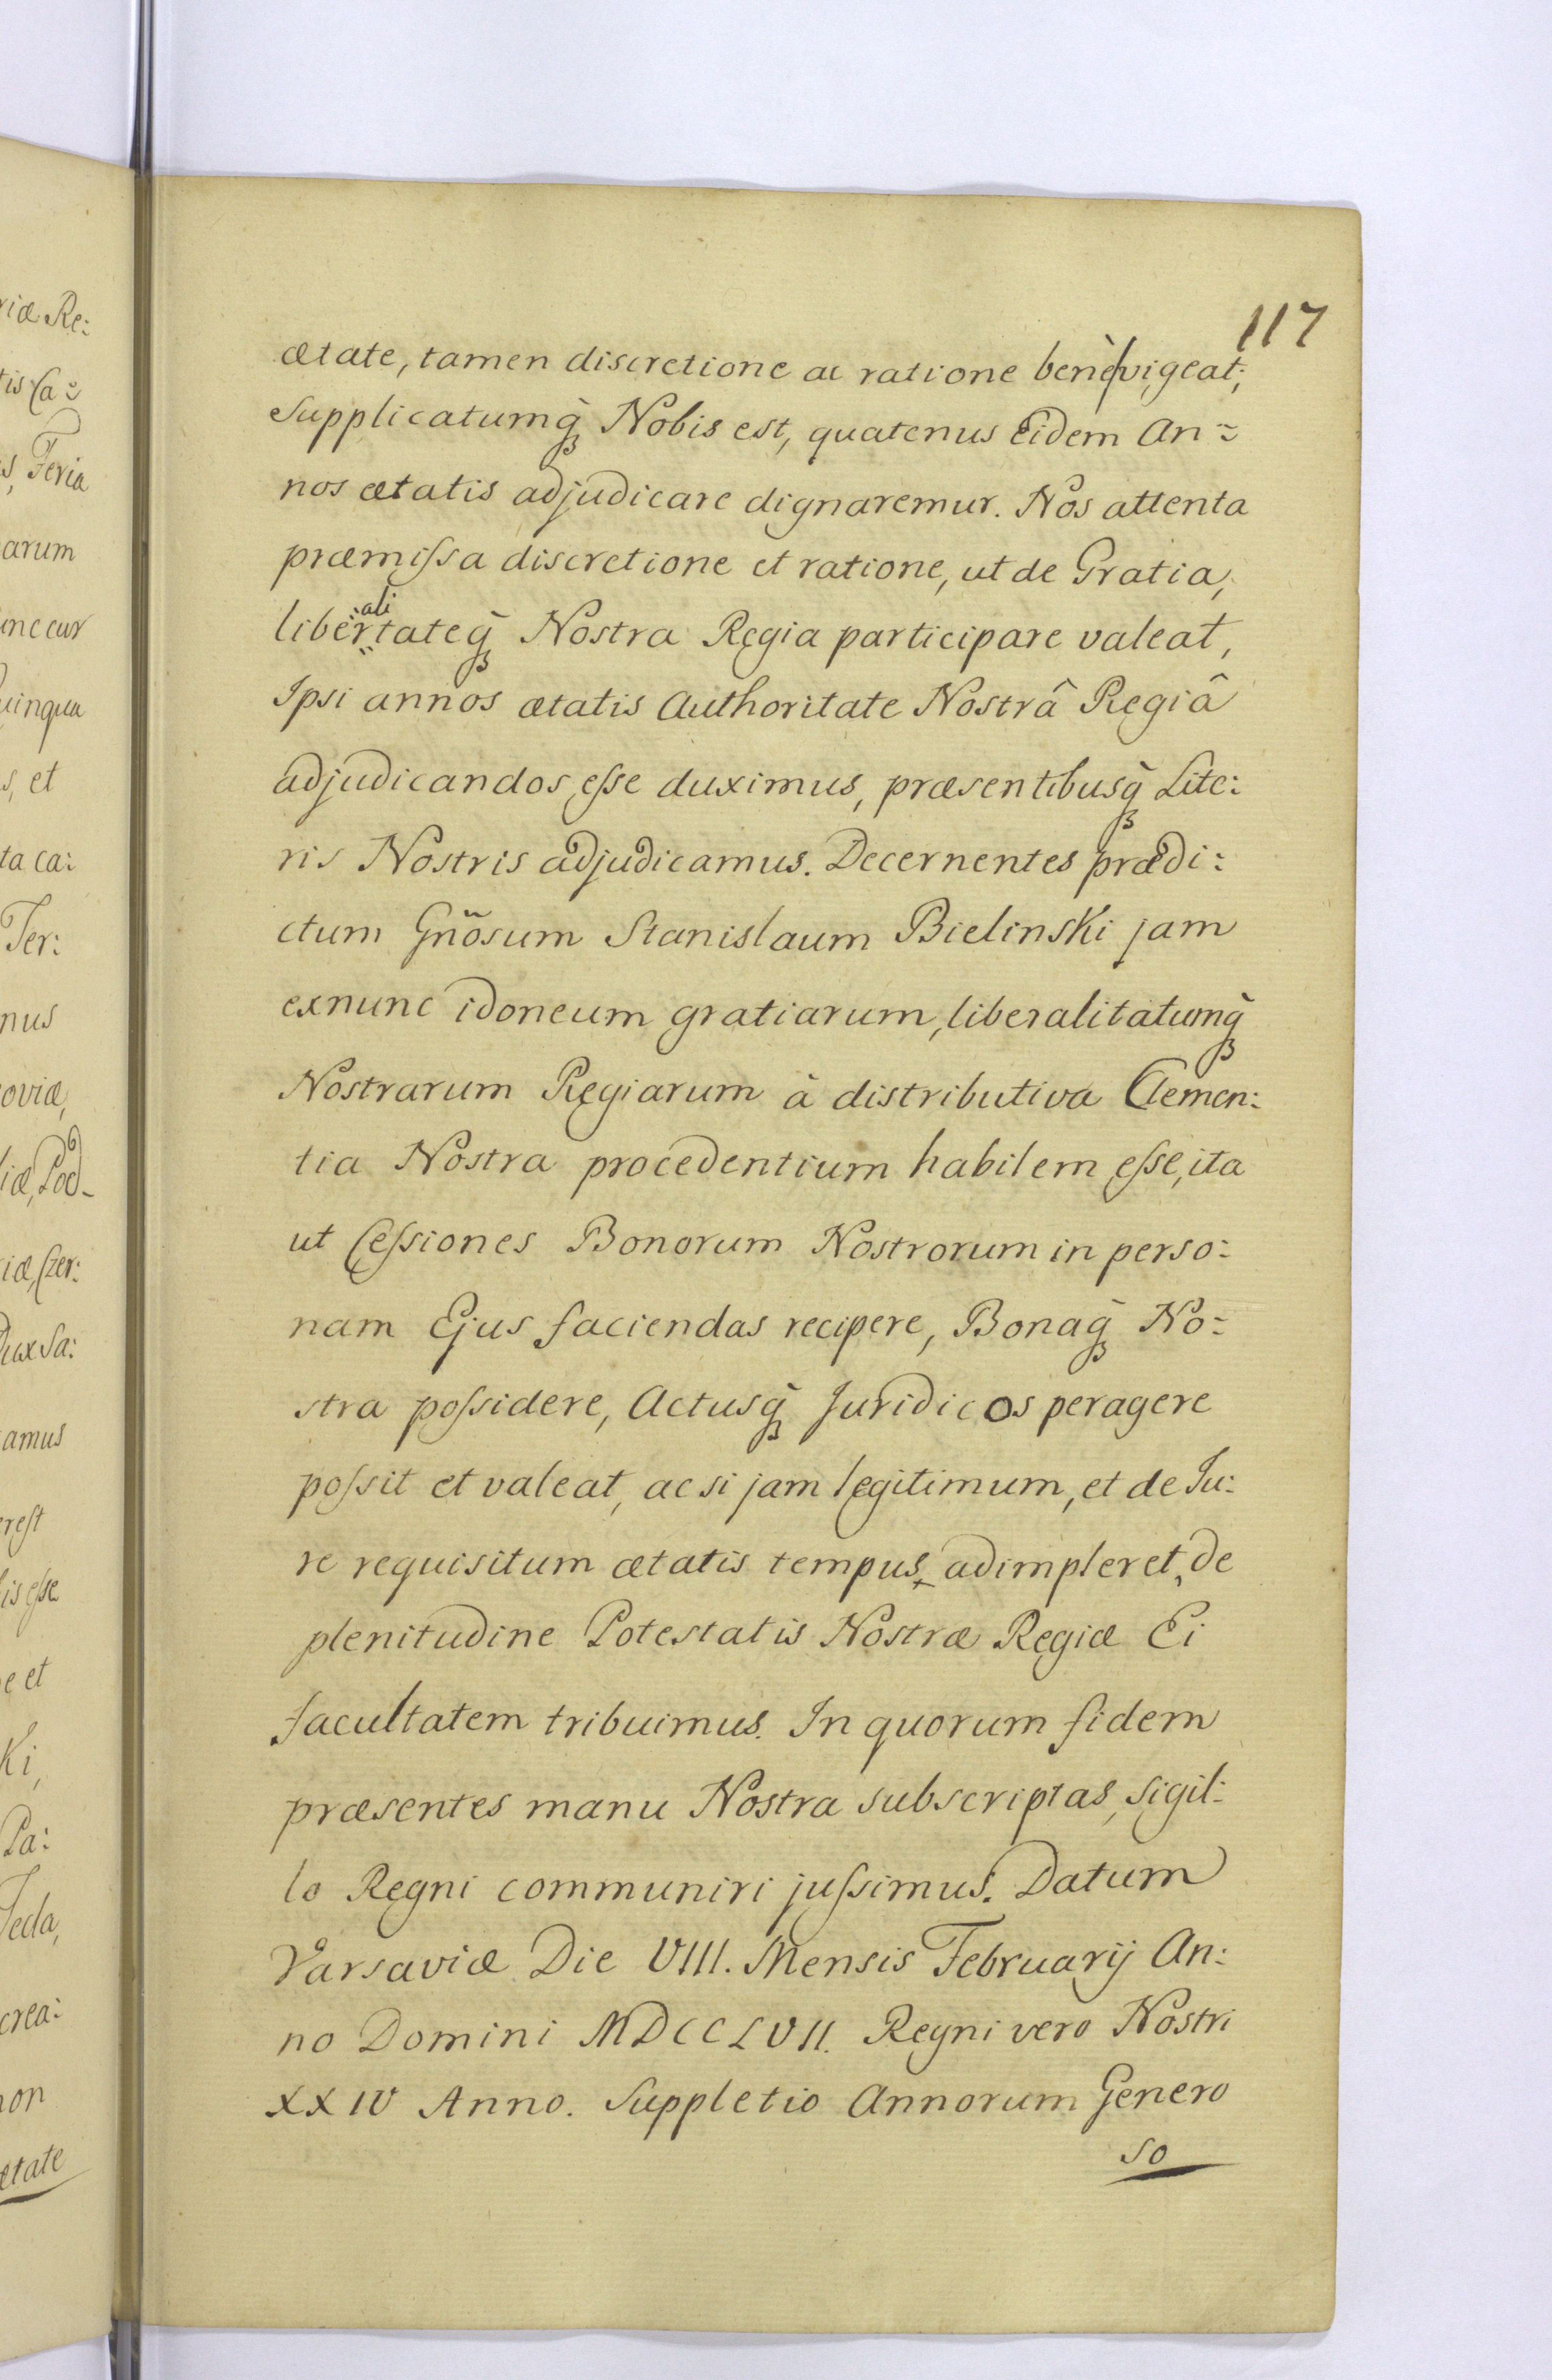 117
ætate, tamen discretione ac ratione benè vigeat;
Supplicatumq̀ꝫ Nobis est, quatenus Eidem An=
nos ætatis adjudicare dignaremur. Nos attenta
præmiſsa discretione et ratione, ut de Gratia,
ali
libertateq̀ꝫ Nostra Regia participare valeat,
Ipsi annos ætatis Authoritate Nostrâ Regiâ
adjudicandos eſse duximus, præsentibusq̀ꝫ Lite:
ris Nostris adjudicamus. Decernentes prædi:
ctum Gñosum Stanislaum Bielinski jam
exnunc idoneum gratiarum, liberalitatumq̀ꝫ
Nostrarum Regiarum à distributiva Clemen:
tia Nostra procedentium habilem eſse, ita
ut Ceſsiones Bonorum Nostrorum in perso:
nam Ejus faciendas recipere, Bonaq̀ꝫ No:
stra poſsidere, Actusq̀ꝫ Juridicos peragere
poſsit et valeat, ac si jam legitimum, et de Ju:
re requisitum ætatis tempus adimpleret, de
plenitudine Potestatis Nostræ Regiæ Ei
facultatem tribuimus. In quorum fidem
præsentes manu Nostra subscriptas, sigil:
lo Regni communiri juſsimus. Datum
Varsaviæ Die VIII. Mensis Februarij An:
no Domini MDCCLVII. Regni vero Nostri
XXIV Anno. Suppletio Annorum Genero
so
riæ Re:
tis Ca:
s, Feria
arum
unc cur
uinqua
s, et
ta ca:
Ter:
nus
oviæ,
liæ, Pod-
iæ, Czer:
Dux Sa:
amus
erest
is eſse
e et
Ki,
Pa:
Tecla,
crea:
non
ætate